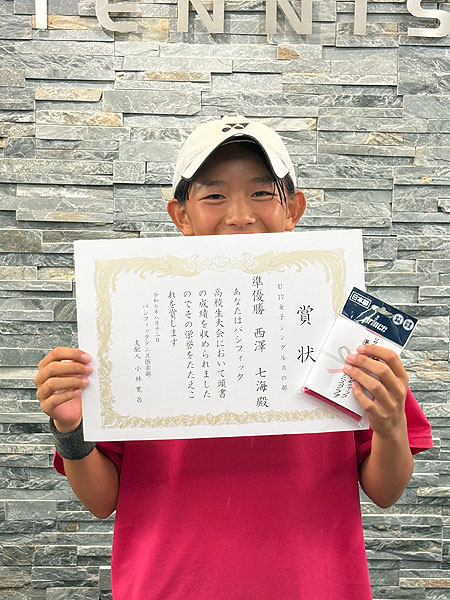 TENNIS
賞状
U17女子シングルスの部
準優勝 西澤 七海殿
あなたはパシフィック
高校生大会において頭書
の成績を収められました
のでその栄誉をたたえこ
れを賞します
令和七年八月十二日
パシフィックテニス倶楽部
支配人 小林
日本製
prince